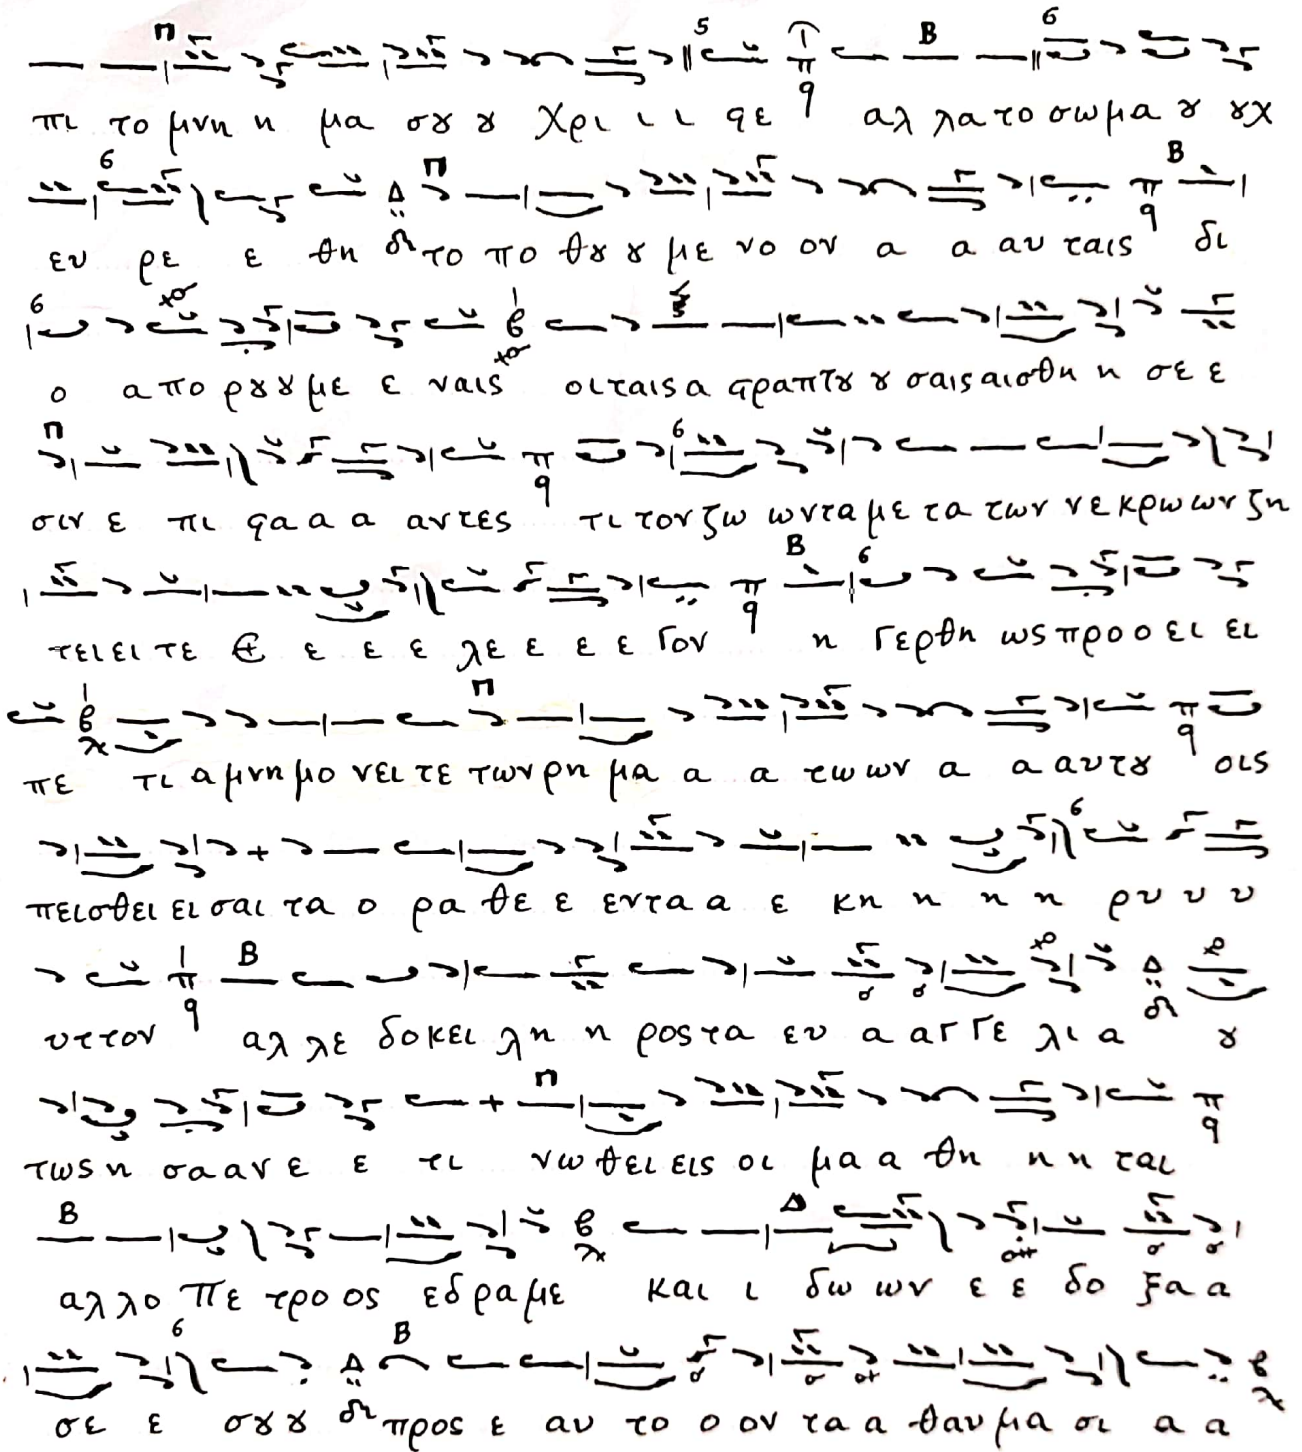 πι το μνη η μα σȣ ȣ Χρι ι ι ϛε αλ λα το σωμα ȣ ȣχ
ευ ρε ε θη το πο θȣ ȣ με νο ον α α αυ ταις δι
ο α πο ρȣ ȣ με ε ναις οι ταις α ϛραπτȣ ȣ σαις αισθη η σε ε
σιν ε πι ϛα α α αντες τι τον ζω ωντα με τα των νε κρω ων ζη
τει ει τε ε ε ε ε λε ε ε ε γον η γερθη ως προ ο ει ει
πε τι α μνη μο νει τε των ρη μα α α τω ων α α αυτȣ οις
πεισθει ει σαι τα ο ρα θε ε εντα α ε κη η η η ρυ υ υ
υττον αλ λε δο κει λη η ρος τα ευ α αγ γε λι α ȣ
τως η σα αν ε ε τι νω θει εις οι μα α θη η η ται
αλλ ο Πε τρο ος εδραμε και ι δω ων ε ε δο ξα α
σε ε σȣ ȣ προς ε αυ το ο ον τα α θαυ μα σι α α